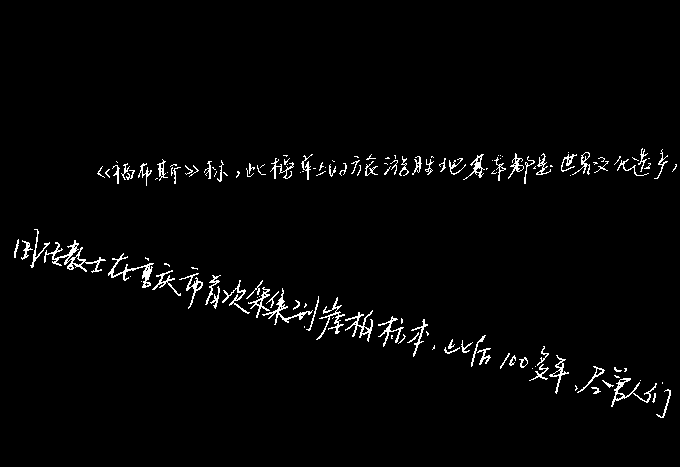 《福布斯》称,此榜单上的旅游胜地基本都是世界文化遗产,
国传教士在重庆市首次采集到崖柏标本,此后100多年,尽管人们